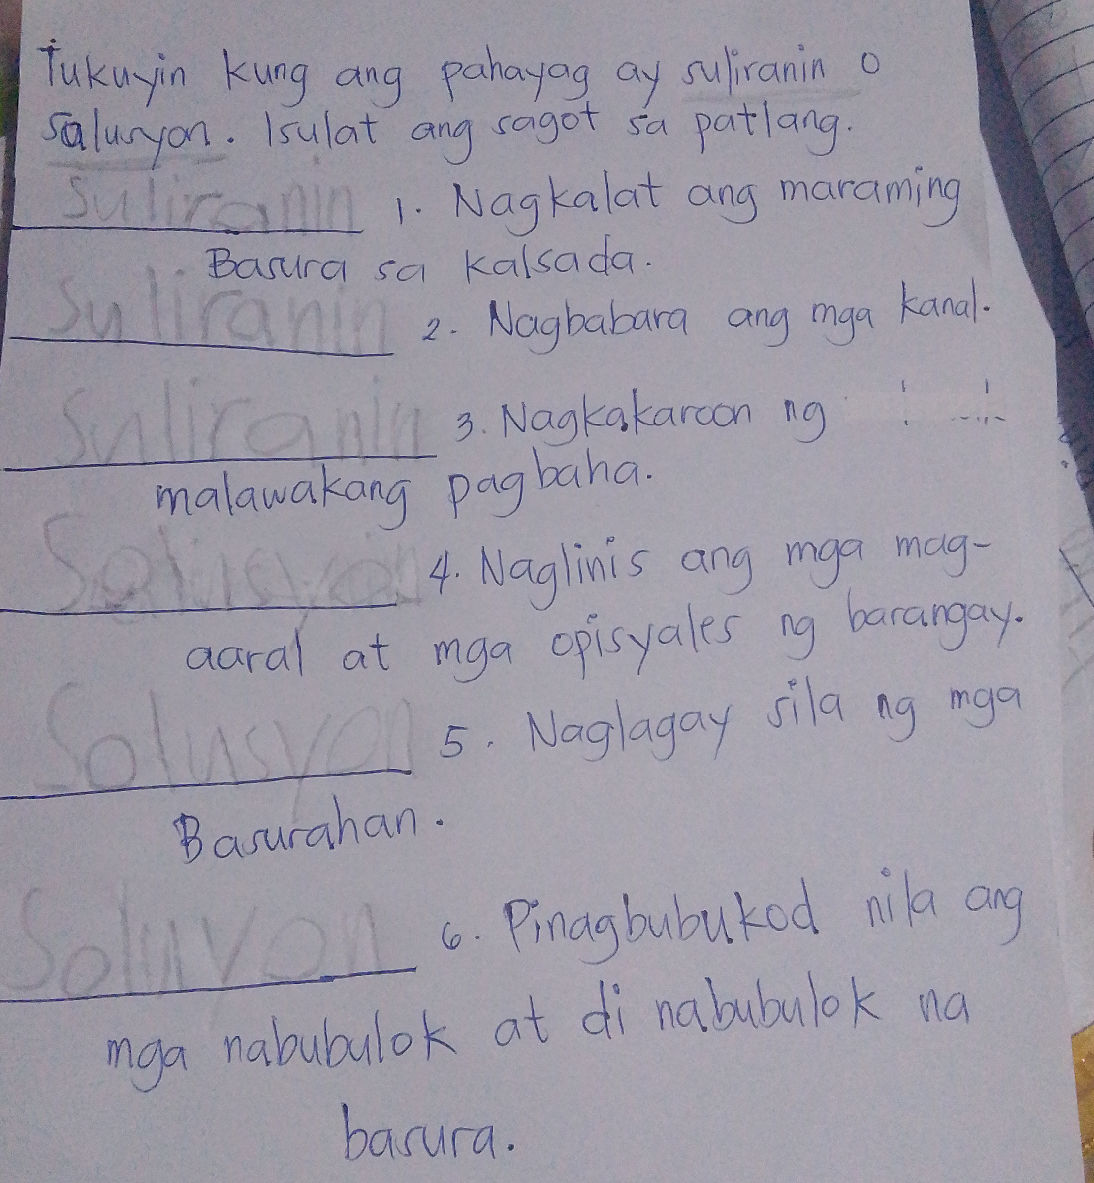 Tukuyin kung ang pahayag ay suliranin o
salusyon. Isulat ang sagot sa patlang.
Suliranin 1. Nagkalat ang maraming
Basura sa kalsada.
Suliranin 2. Nagbabara ang mga kanal.
Suliranin 3. Nagkakaroon ng
malawakang pagbaha.
Solusyon 4. Naglinis ang mga mag-
aaral at mga opisyales ng barangay.
Solusyon 5. Naglagay sila ng mga
Basurahan.
6. Pinagbubukod nila ang
mga nabubulok at di nabubulok na
basura.